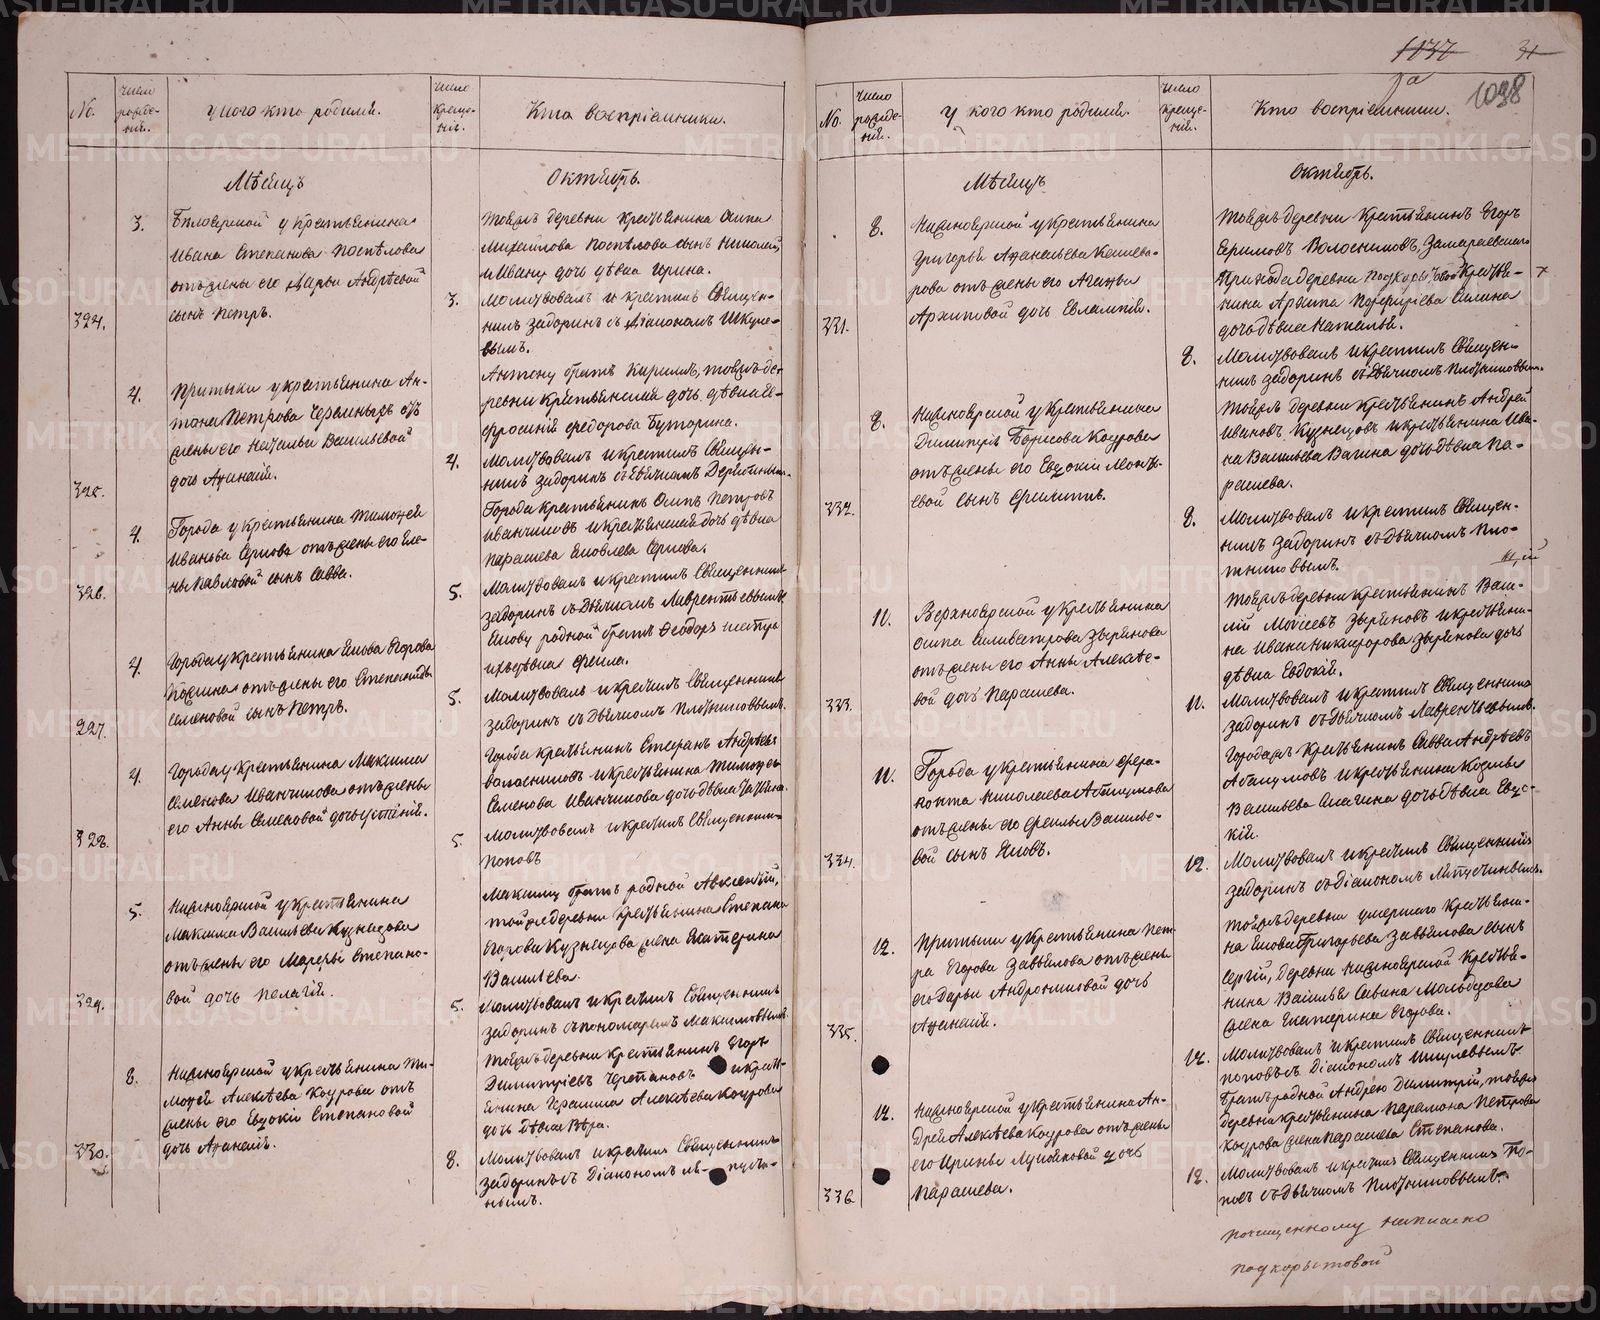 1137 31
1038
No.
Число рожде-
ній.
У кого кто родился.
Число
креще-
нія.
Кто воспріемники.
Мѣсяцъ
Октябрь.
3.
Бѣлоярской у крестьянина
Ивана Степанова Поспѣлова
отъ жены его Марьи Андреевой
сынъ Петръ.
324.
тойжъ деревни крестьянина Осипа
Михайлова Поспѣлова сынъ Николай,
и Ивану дочь дѣвка Ирина.
3.
Молитвовалъ и крестилъ Священ-
никъ Задоринъ съ Діакономъ Шкуле-
вымъ.
4.
Притыки у крестьянина Ан-
тона Петрова Черемныхъ отъ
жены его Натальи Васильевой
дочь Афанасія.
325.
Антону братъ Кириллъ, тойжъ де-
ревни крестьянская дочь дѣвка Е-
фросинія Федорова Буторина.
4.
Молитвовалъ и крестилъ Священ-
никъ Задоринъ съ Дьячкомъ
4.
Города у крестьянина Тимофея
Иванова Сернова отъ жены его Еле-
ны Павловой сынъ Савва.
326.
Города крестьянинъ Осипъ Петровъ
Иванчиковъ и крестьянская дочь дѣвка
Парасковья Яковлева Сернова.
5.
Молитвовалъ и крестилъ Священникъ
Задоринъ съ Дьячкомъ Лаврентьевымъ.
4.
Города у крестьянина Якова Егорова
отъ жены его Степаниды
Семеновой сынъ Петръ.
327.
Якову родной братъ Феодоръ
ихъ дѣвка Фекла.
5.
Молитвовалъ и крестилъ Священникъ
Задоринъ съ Дьячкомъ Плотниковымъ.
4.
Города у крестьянина Максима
Семенова Иванчикова отъ жены
его Анны Семеновой дочь Устинія.
328.
Города крестьянинъ Стефанъ Андреевъ
и крестьянина Тимофея
Семенова Иванчикова дочь дѣвка Татьяна.
5.
Молитвовалъ и крестилъ Священникъ
Поповъ
5.
Нижноярской у крестьянина
Максима Васильева Кузнецова
отъ жены его Марфы Степано-
вой дочь Пелагія.
329.
Максиму братъ родной Авксентій,
той же деревни крестьянина Степана
Егорова Кузнецова жена Екатерина
Васильева.
5.
Молитвовалъ и крестилъ Священникъ
Задоринъ съ пономаремъ Максимовымъ
8.
Нижноярской у крестьянина Ти-
мофея Алексѣева Коурова отъ
жены его Евдокіи Степановой
дочь Афанасія.
330.
Тойжъ деревни крестьянинъ Егоръ
Димитріевъ Черепановъ и кресть-
янина Герасима Алексѣева Коурова
дочь дѣвка Вѣра.
8.
Молитвовалъ и крестилъ Священникъ
Задоринъ съ Діакономъ Ля-пусти-
нымъ.
No.
Число
рожде-
ній.
У кого кто родился.
Число
креще-
ній.
Кто воспріемники.
Мѣсяцъ
Октябрь.
8.
Нижноярской у крестьянина
Григорья Афанасьева Кашева-
рова отъ жены его Агафьи
Архиповой дочь Евлампія.
331.
Тойжъ деревни крестьянинъ Егоръ
Ефимовъ Волосниковъ, Замараевскаго
прихода деревни крестья-
нина Архипа Порфирьева Силина
дочь дѣвка Наталья.
8.
Молитвовалъ и крестилъ Священ-
никъ Задоринъ съ Дьячкомъ Плотниковымъ.
8.
Нижноярской у крестьянина
Димитрія Борисова Коурова
отъ жены его Евдокіи Моисе-
евой сынъ Филиппъ.
332.
Тойжъ деревни крестьянинъ Андрей
Ивановъ Кузнецовъ и крестьянина Ива-
на Васильева Вагина дочь дѣвка Па-
расковья.
8.
Молитвовалъ и крестилъ Священ-
никъ Задоринъ съ Дьячкомъ Пло-
тниковымъ.
11.
Верхноярской у крестьянина
Осипа Сильвестрова Зырянова
отъ жены его Анны Алексѣе-
вой дочь Парасковья.
333.
Тойжъ деревни крестьянинъ Васи-
лій Моисеевъ Зыряновъ и крестьяни-
на Ивана Никифорова Зырянова дочь
дѣвка Евдокія.
11.
Молитвовалъ и крестилъ Священникъ
Задоринъ съ Дьячкомъ Лаврентьевымъ.
11.
Города у крестьянина Фера-
понта Николаева
отъ жены его Феклы Василье-
вой сынъ Яковъ.
334.
Города крестьянинъ Савва Андреевъ
и крестьянина Козмы
Васильева дочь дѣвка Евдо-
кія.
12.
Молитвовалъ и крестилъ Священникъ
Задоринъ съ Діакономъ Ляпустинымъ.
12.
Притыки у крестьянина Пет-
ра Егорова Завьялова отъ жены
его Дарьи Андрониковой дочь
Афанасія.
335.
тойжъ деревни умершаго крестьяни-
на Якова Григорьева Завьялова сынъ
Сергій, деревни Нижноярской крестья-
нина Василья Савина
жена Екатерина Егорова.
12.
Молитвовалъ и крестилъ Священникъ
Поповъ съ Діакономъ Шкулевымъ
12.
Нижноярской у крестьянина Ан-
дрея Алексѣева Коурова отъ жены
его Ирины Лукояновой дочь
Парасковья.
336.
Братъ родной Андрею Димитрій, тойжъ
деревни крестьянина Парамона Петрова
Коурова жена Парасковья Степанова.
12.
Молитвовалъ и крестилъ Священникъ По-
повъ съ Дьячкомъ Плотниковымъ.
По чищенному написано
Подкорытовой
METRIKI.GASO-URAL.RU